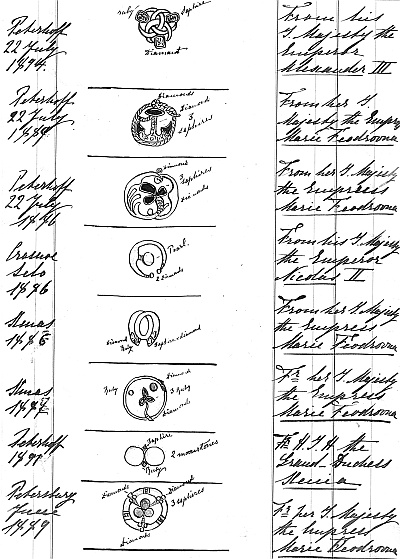 Peterhoff
22 July
1894.
ruby
Sapphire
Diamant
From his
I. Majesty the
Emperor
Alexander III
Peterhoff
22 July
Diamonds
Diamond
3
sapfieres
From her I.
Majesty the Empress
Marie Feodrovna
Peterhoff
22 July
1896
diamond
3
sapfieres
diamonds
From her I. Majesty
the Empress
Marie Feodrovna
Selo
1896
Pearl.
2 diamonds
From his I. Majesty
the Emperor
Nicolas II
diamond
Ruby
From her I. Majesty
the Empress
Marie Feodrovna
Ruby
diamond
3 Ruby
diamonds
Fr her I. Majesty
the Empress
Marie Feodrovna
Peterhoff
Saphire
2 moonstones
Fr H. I. H. the
Grand Duchess
Petersburg
1889
Diamonds
Diamond
3 sapfieres
Diamonds
Fr her I. Majesty
the Empress
Marie Feodrovna